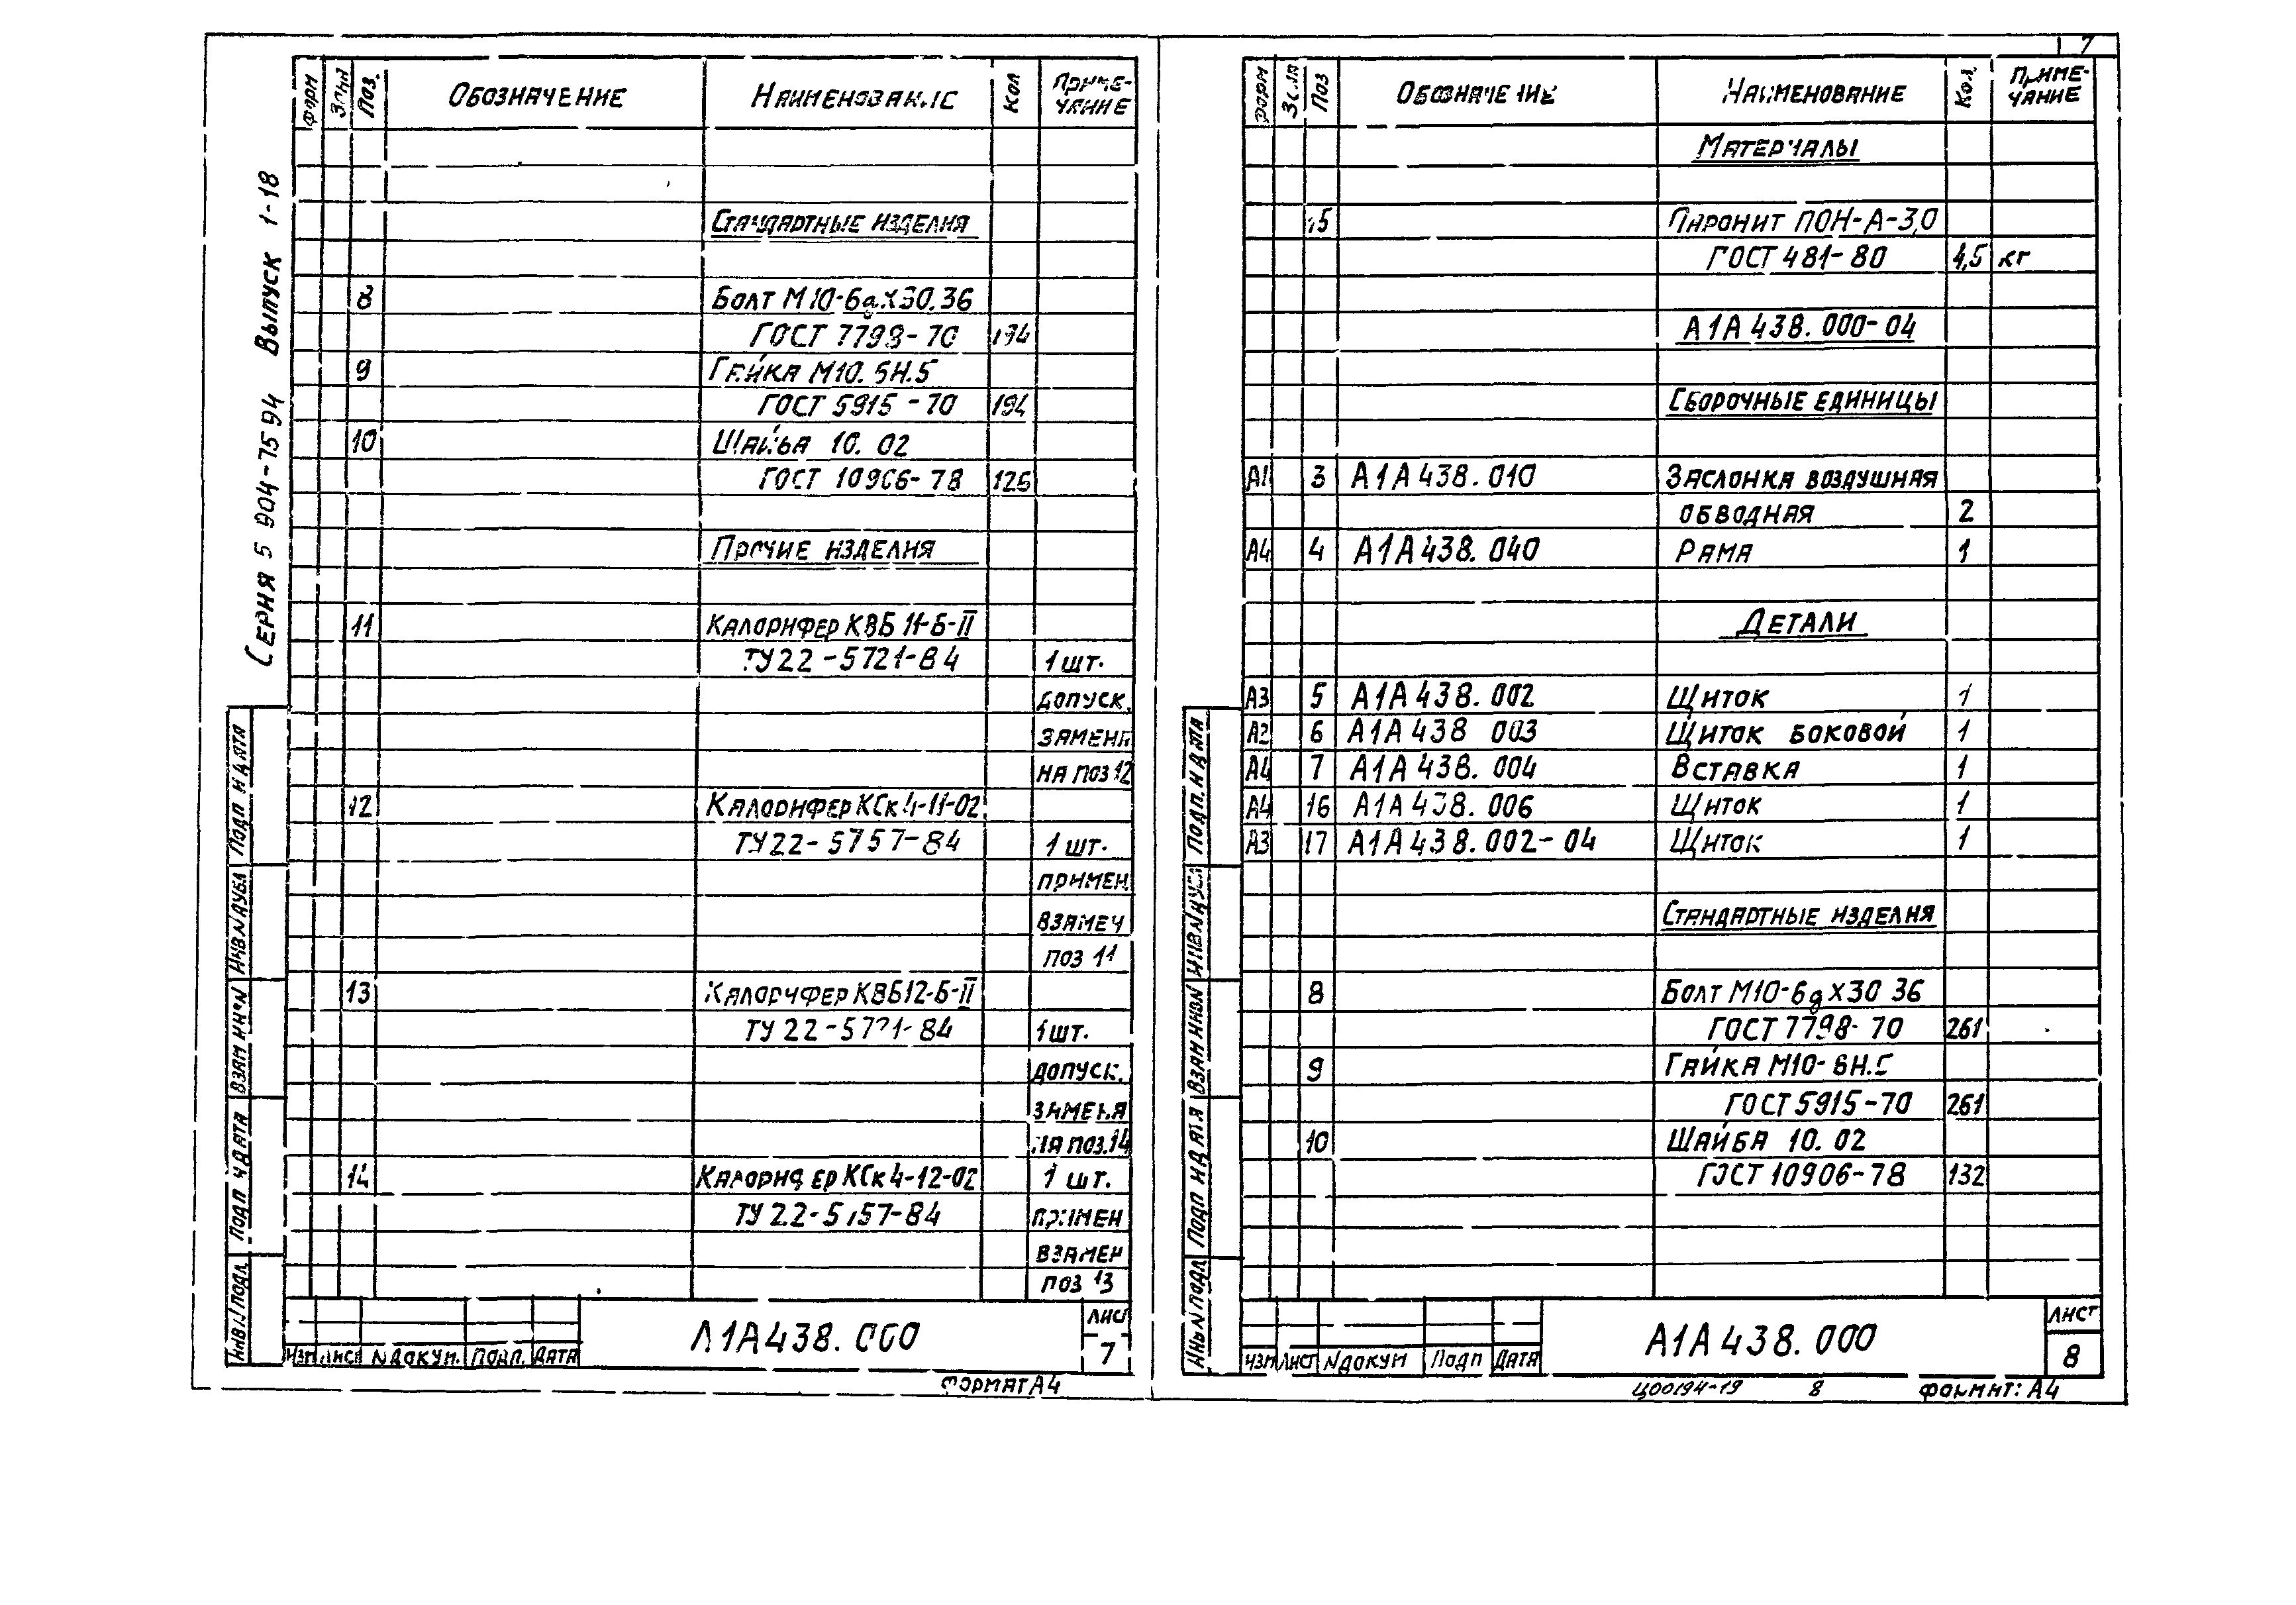 Серия 5 904-75 94 Выпуск 1-18
Форм Зона Поз. Обозначение Наименование Кол Приме-
чание
Стандартные изделия
8 Болт М10-6gх30.36
ГОСТ 7798-70 194
9 Гайка М10. 6Н.5
ГОСТ 5915-70 194
10 Шайба 10. 02
ГОСТ 10906-78 126
Прочие изделия
11 Калорифер КВБ 11-Б-II
ТУ 22-5721-84 1 шт.
допуск.
замена
на поз 12
12 Калорифер КСк 4-11-02
ТУ 22-5757-84 1 шт.
примен
взамен
поз 11
13 Калорифер КВБ12-Б-II
ТУ 22-5721-84 1 шт.
допуск.
замена
на поз.14
14 Калорифер КСк 4-12-02 1 шт.
ТУ 22-5757-84 примен
взамен
поз 13
Инв N подл. Подп и дата Взам инв N Инв N дубл Подп и дата
Изм Лист N докум. Подп. Дата
А1А438.000
Лист
7
Формат А4
7
Форм Зона Поз Обозначение Наименование Кол. Приме-
чание
Материалы
15 Паронит ПОН-А-3,0
ГОСТ 481-80 4,5 кг
А1А 438.000-04
Сборочные единицы
А1 3 А1А 438.010 Заслонка воздушная
обводная 2
А4 4 А1А 438.040 Рама 1
Детали
А3 5 А1А 438.002 Щиток 1
А2 6 А1А 438 003 Щиток боковой 1
А4 7 А1А 438.004 Вставка 1
А4 16 А1А 438.006 Щиток 1
А3 17 А1А 438.002-04 Щиток 1
Стандартные изделия
8 Болт М10-6gх30 36
ГОСТ 7798-70 261
9 Гайка М10-6Н.5
ГОСТ 5915-70 261
10 Шайба 10. 02
ГОСТ 10906-78 132
Инв N подл Подп и дата Взам инв N Инв N дубл Подп. и дата
Изм Лист N докум Подп Дата
А1А 438.000
Лист
8
Ц00194-19 8 Формат: А4